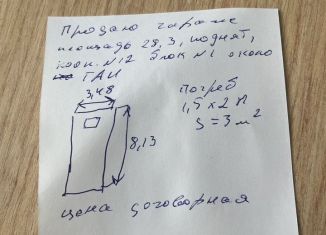 Продаю гараж
площадь 28,3, поднят,
кооп. N12 блок N1 около
ГАИ
3,48
8,13
погреб
1,5 x 2 П
S = 3 м²
цена договорная